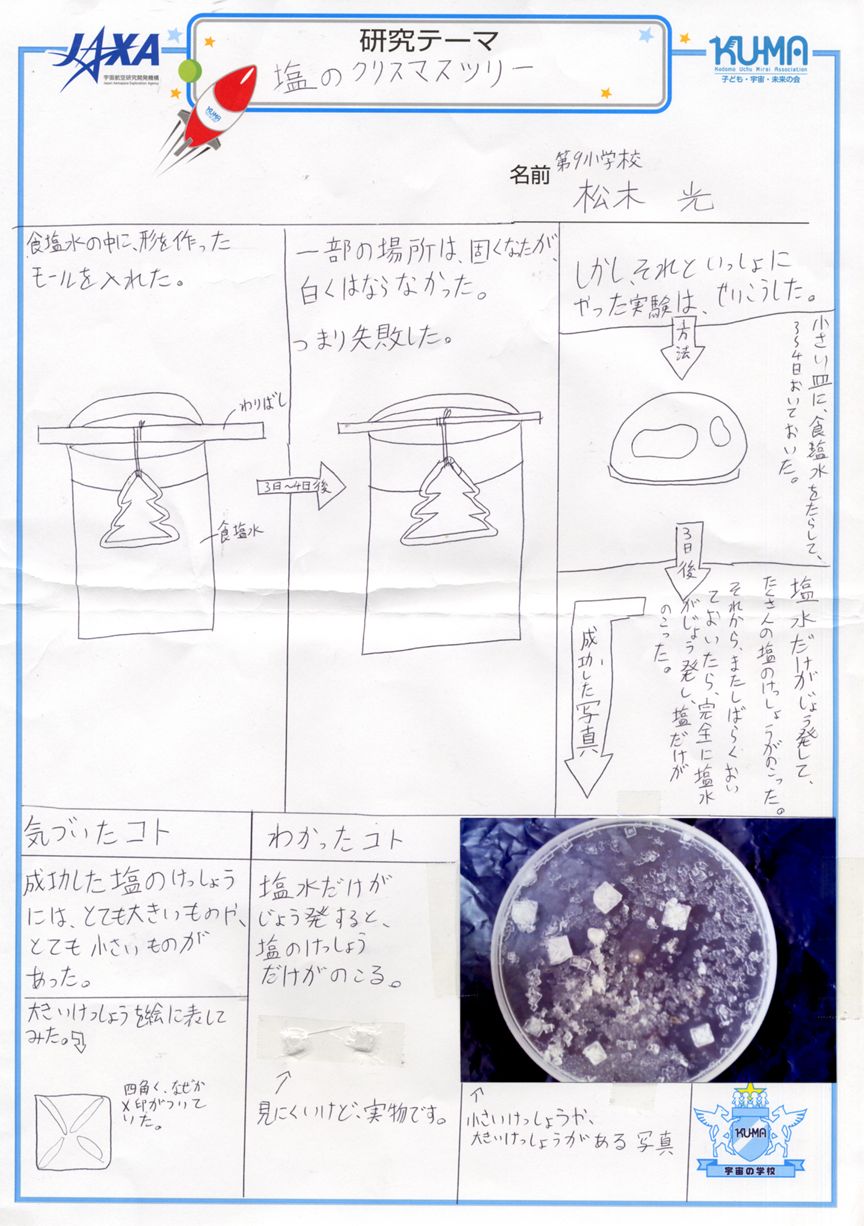 JAXA
宇宙航空研究開発機構
Japan Aerospace Exploration Agency
研究テーマ
塩のクリスマスツリー
KU-MA
Kodomo Uchu Mirai Association
子ども・宇宙・未来の会
KU-MA
名前
第9小学校
松木 光
食塩水の中に、形を作った
モールを入れた。
わりばし
食塩水
3日〜4日後
一部の場所は、固くなたが、
白くはならなかった。
つまり失敗した。
しかし、それといっしょに
やった実験は、せいこうした。
方法
小さい皿に、食塩水をたらして、
3〜4日おいておいた。
3日後
塩水だけがじょう発して、
たくさんの塩のけっしょうがのこった。
それから、またしばらくおい
ておいたら、完全に塩水
がじょう発し、塩だけが
のこった。
成功した写真
気づいたコト
成功した塩のけっしょう
には、とても大きいものや、
とても小さいものが
あった。
大きいけっしょうを絵に表して
みた。
四角く、なぜか
メ印がついて
いた。
わかったコト
塩水だけが
じょう発すると、
塩のけっしょう
だけがのこる。
見にくいけど、実物です。
小さいけっしょうや、
大きいけっしょうがある写真
KU-MA
宇宙の学校